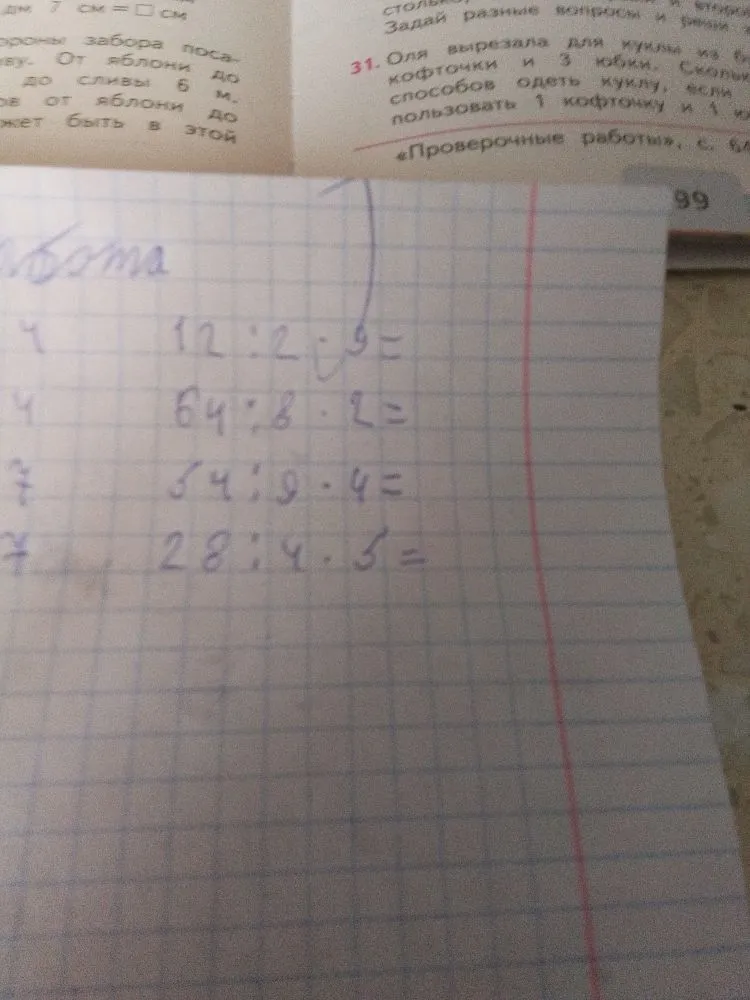 дм 7 см = □ см
ороны забора поса-
ву. От яблони до
до сливы 6 м.
ов от яблони до
жет быть в этой
Задай разные вопросы и реши
31. Оля вырезала для куклы из
кофточки и 3 юбки. Скольк
способов одеть куклу, если
пользовать 1 кофточку и 1 ю
«Проверочные работы», с.
99
абота
4 12 : 2 · 9 =
4 64 : 8 · 2 =
7 54 : 9 · 4 =
7 28 : 4 · 5 =